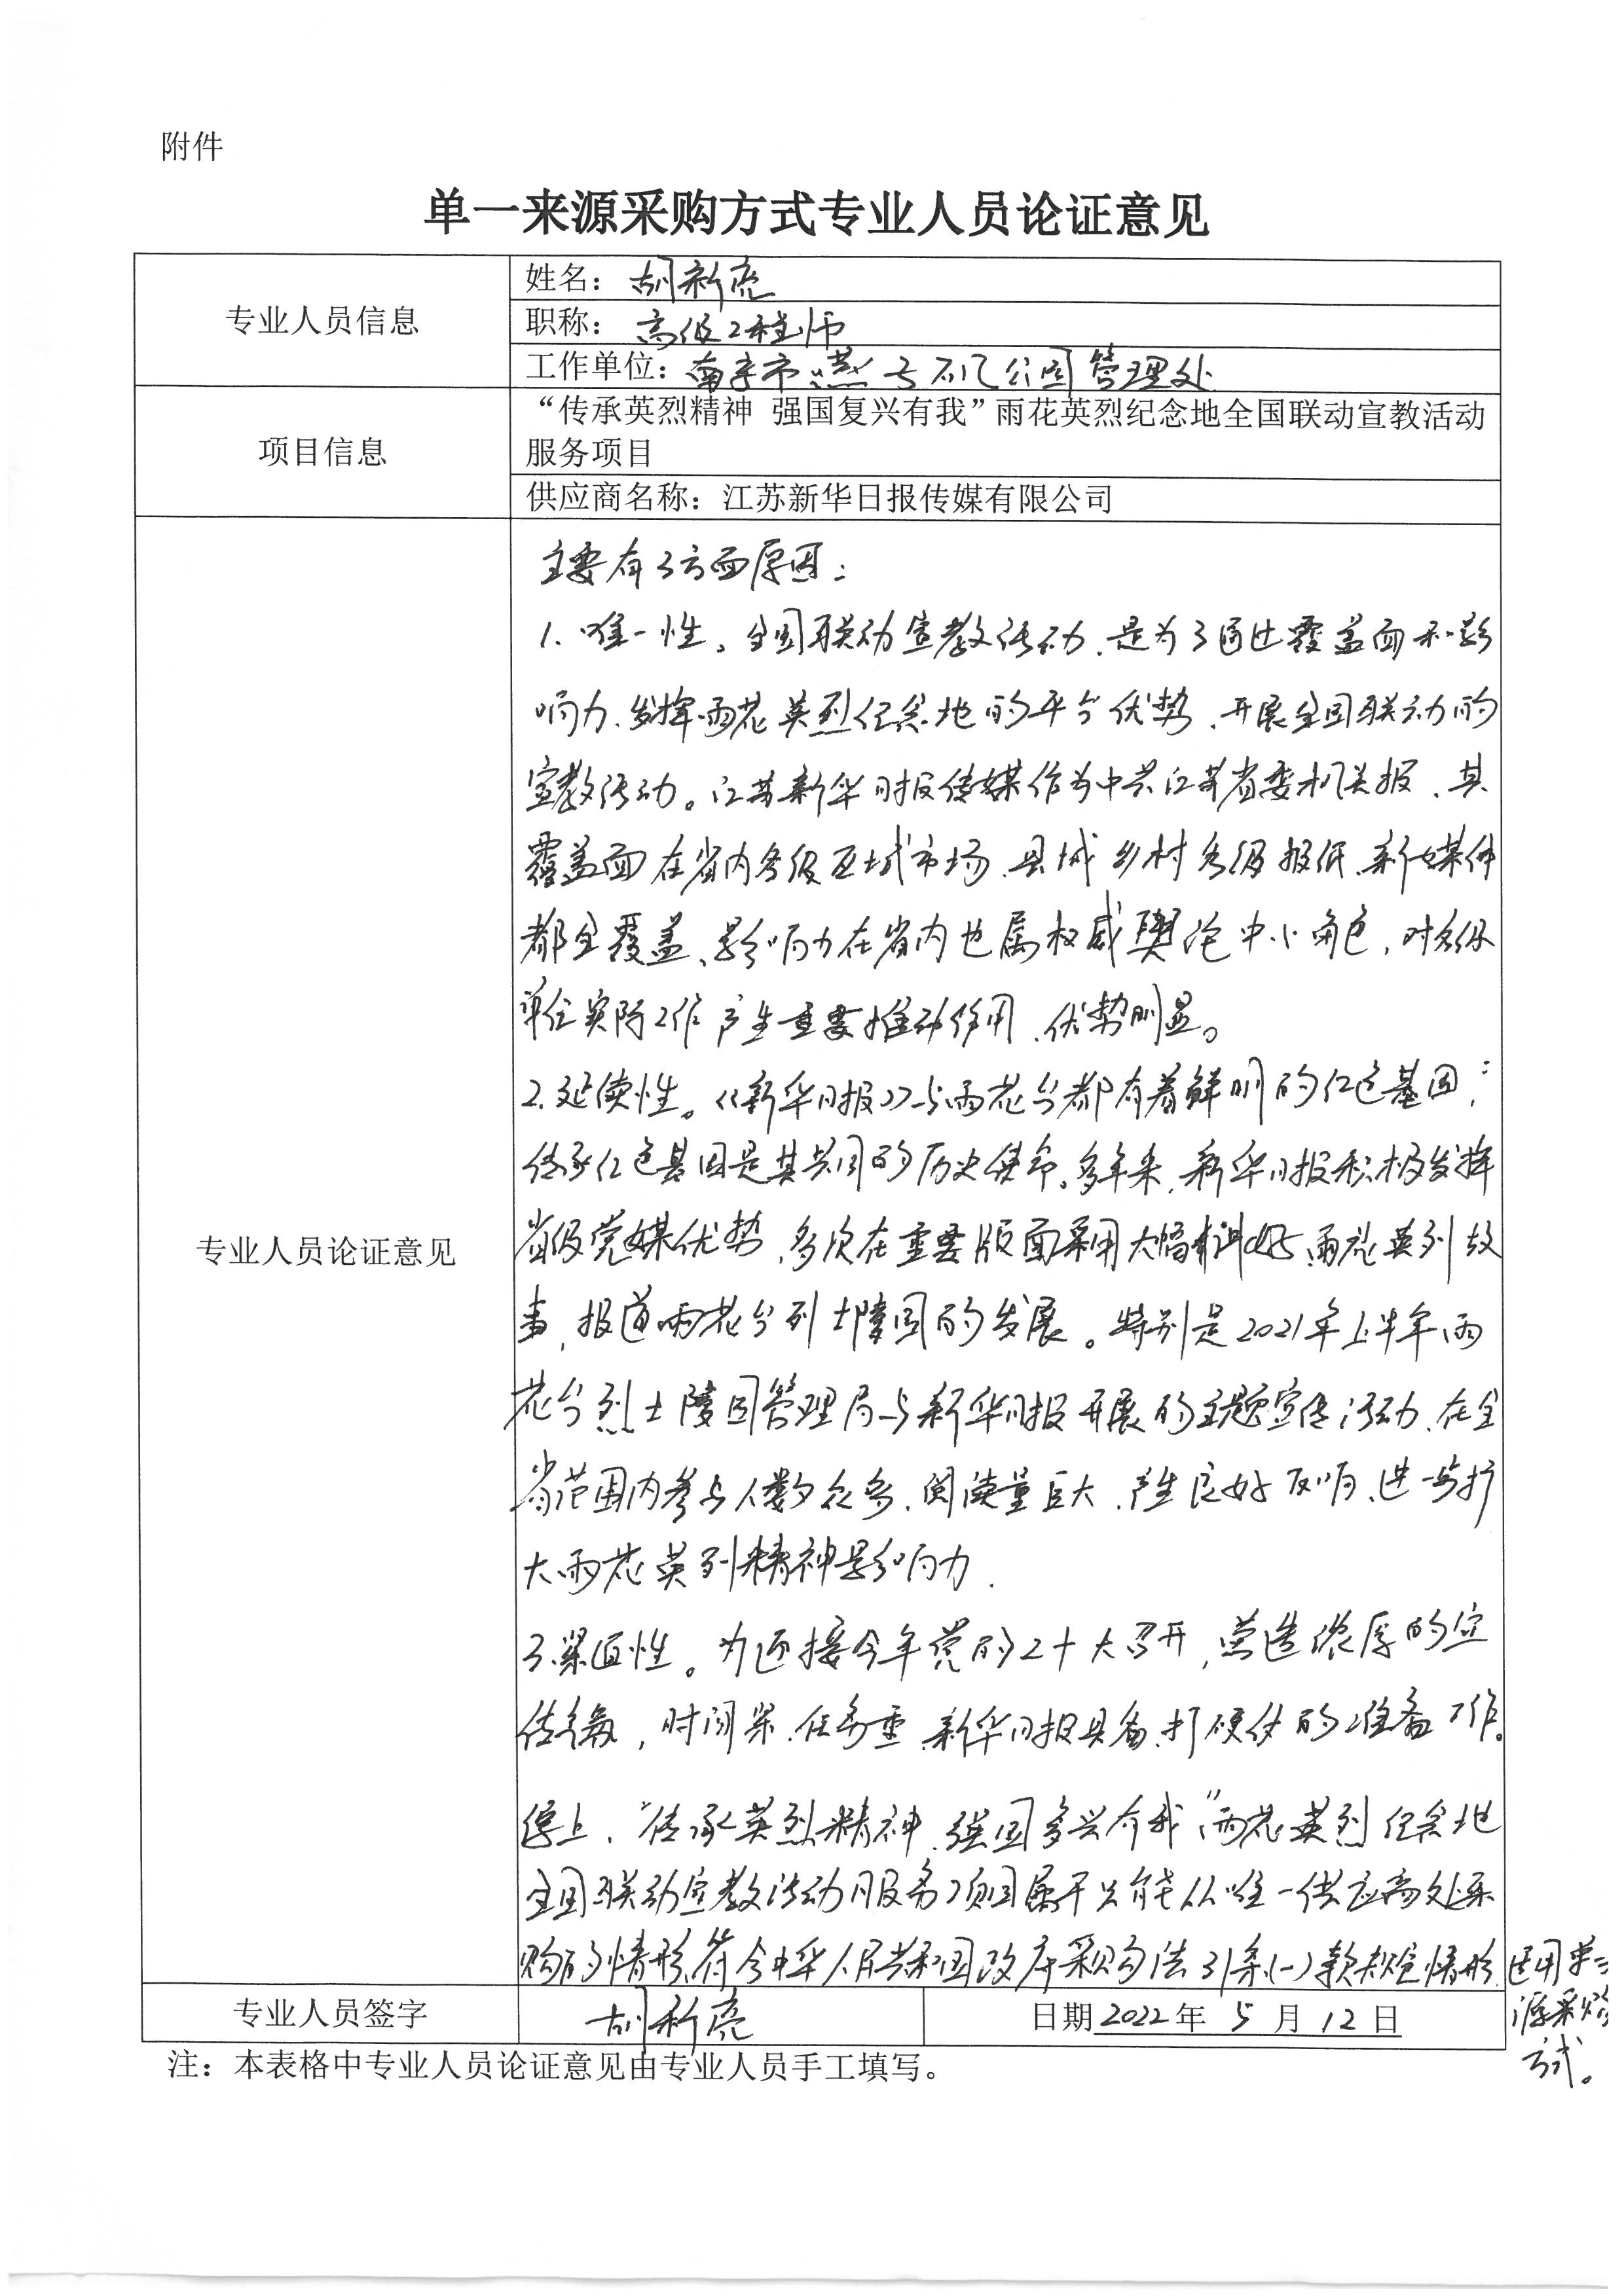 附件
单一来源采购方式专业人员论证意见
专业人员信息
姓名：胡新亮
职称：高级工程师
工作单位：南京市燕子矶公园管理处
项目信息
“传承英烈精神 强国复兴有我”雨花英烈纪念地全国联动宣教活动
服务项目
供应商名称：江苏新华日报传媒有限公司
专业人员论证意见
主要有3方面原因：
1、唯一性。全国联动宣教活动，是为了通过覆盖面和影
响力、发挥雨花英烈纪念地的平台优势，开展全国联动的
宣教活动。江苏新华日报传媒作为中共江苏省委机关报，其
覆盖面在省内各级区域市场、县城乡村各级报纸、新媒体
都全覆盖、影响力在省内也属权威舆论中心角色，对各级
单位实际工作产生重要推动作用，优势明显。
2、延续性。《新华日报》与雨花台都有着鲜明的红色基因；
传承红色基因是其共同的历史使命。多年来，新华日报积极发挥
省级党媒优势，多次在重要版面采用大幅 雨花英烈故
事，报道雨花台烈士陵园的发展。特别是2021年上半年雨
花台烈士陵园管理局与新华日报开展的主题宣传活动，在全
省范围内参与人数众多，阅读量巨大，产生良好反响，进一步扩
大雨花英烈精神影响力．
3、紧迫性。为迎接今年党的二十大召开，营造浓厚的宣
传氛，时间紧、任务重，新华日报具备打硬仗的准备工作。
综上，“传承英烈精神、强国复兴有我”雨花英烈纪念地
全国联动宣教活动服务项目属于只能从唯一供应商处采
购的情形，符合中华人民共和国政府采购法31条(一)款规定情形，适用单一
源采购
方式。
专业人员签字
胡新亮
日期2022年 5 月 12 日
注：本表格中专业人员论证意见由专业人员手工填写。